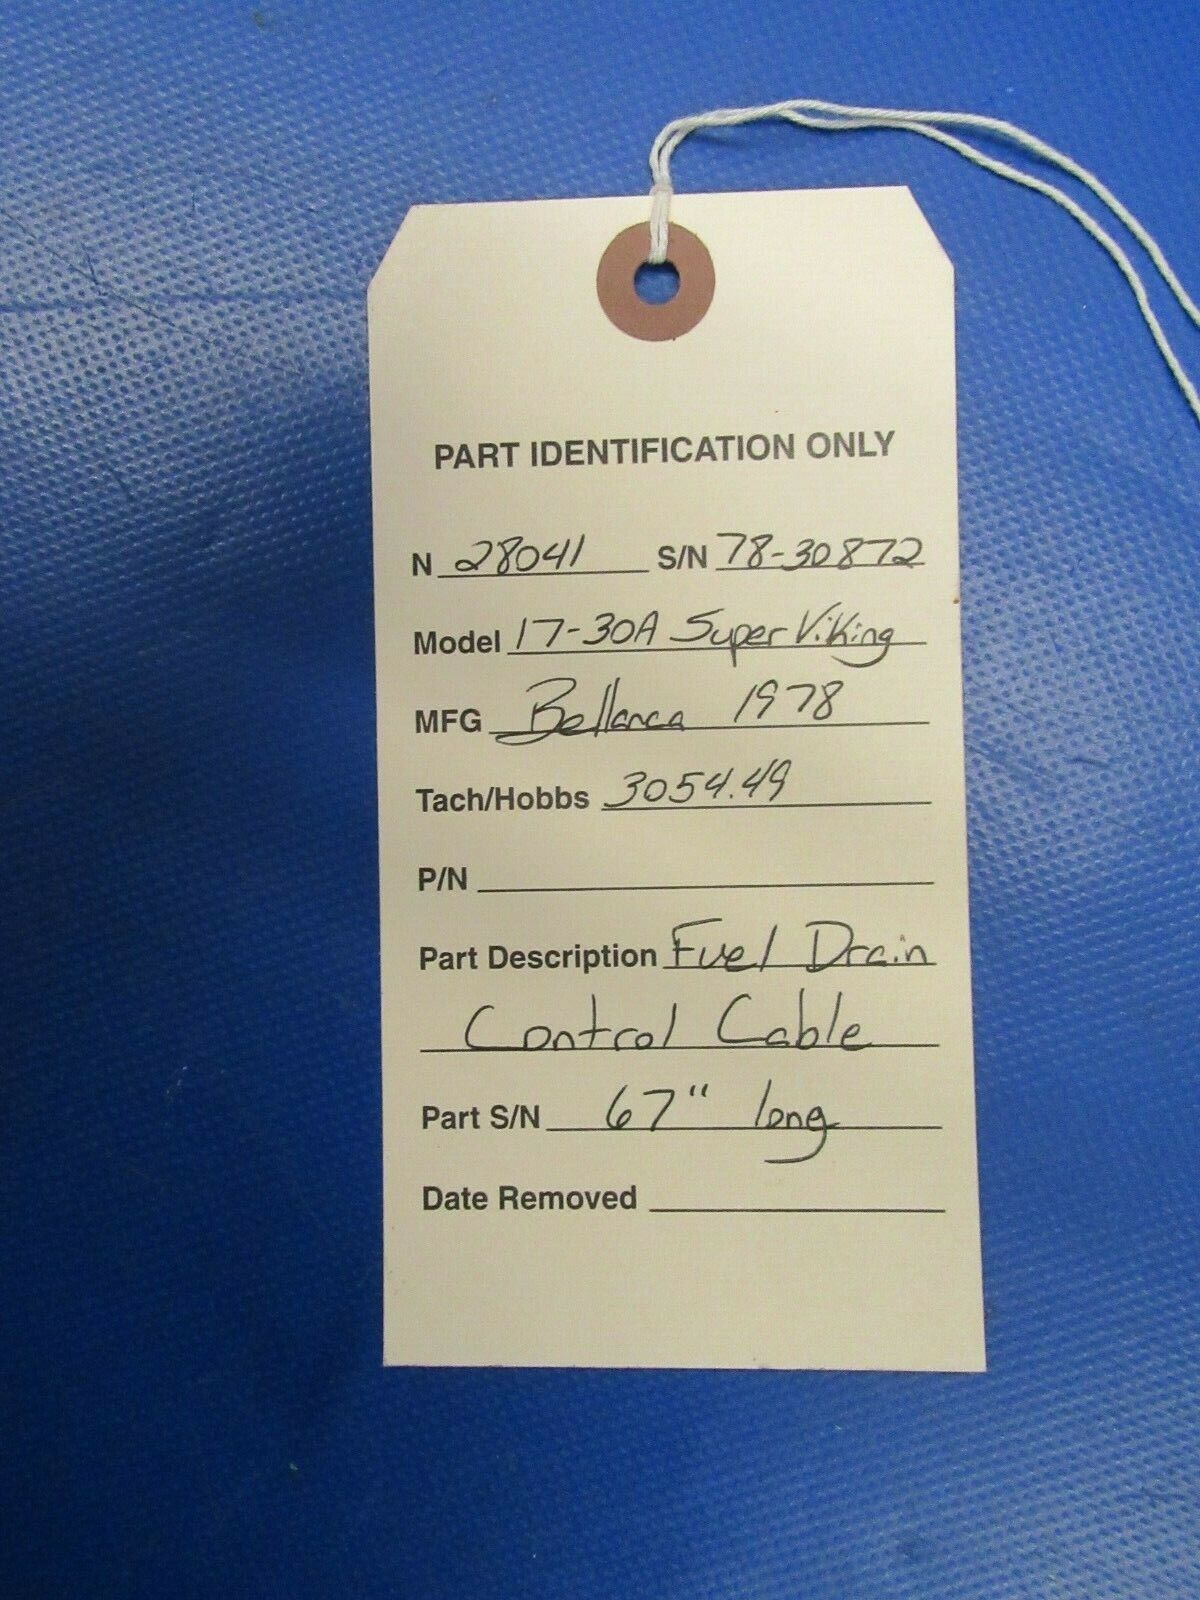 PART IDENTIFICATION ONLY
N 28041 S/N 78-30872
Model 17-30A Super Viking
MFG Bellanca 1978
Tach/Hobbs 3054.49
P/N
Part Description Fuel Drain
Control Cable
Part S/N 67" long
Date Removed